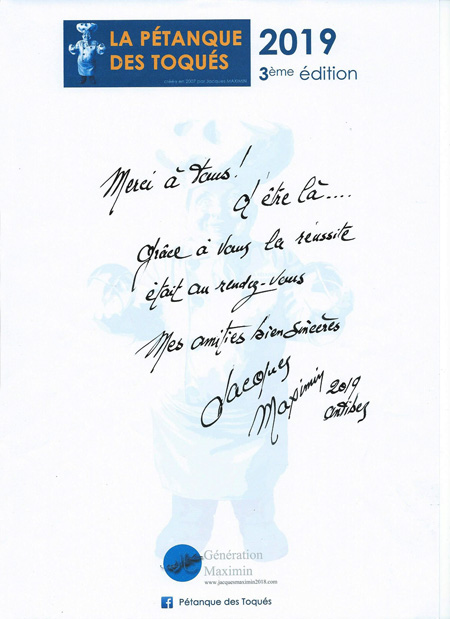 LA PÉTANQUE
DES TOQUÉS
créée en 2007 par Jacques MAXIMIN
2019
3ème édition
Merci à tous !
d'être là....
grâce à vous la réussite
était au rendez-vous
Mes amitiés bien sincères
Jacques
Maximin 2019
Antibes
Génération
Maximin
www.jacquesmaximin2018.com
Pétanque des Toqués